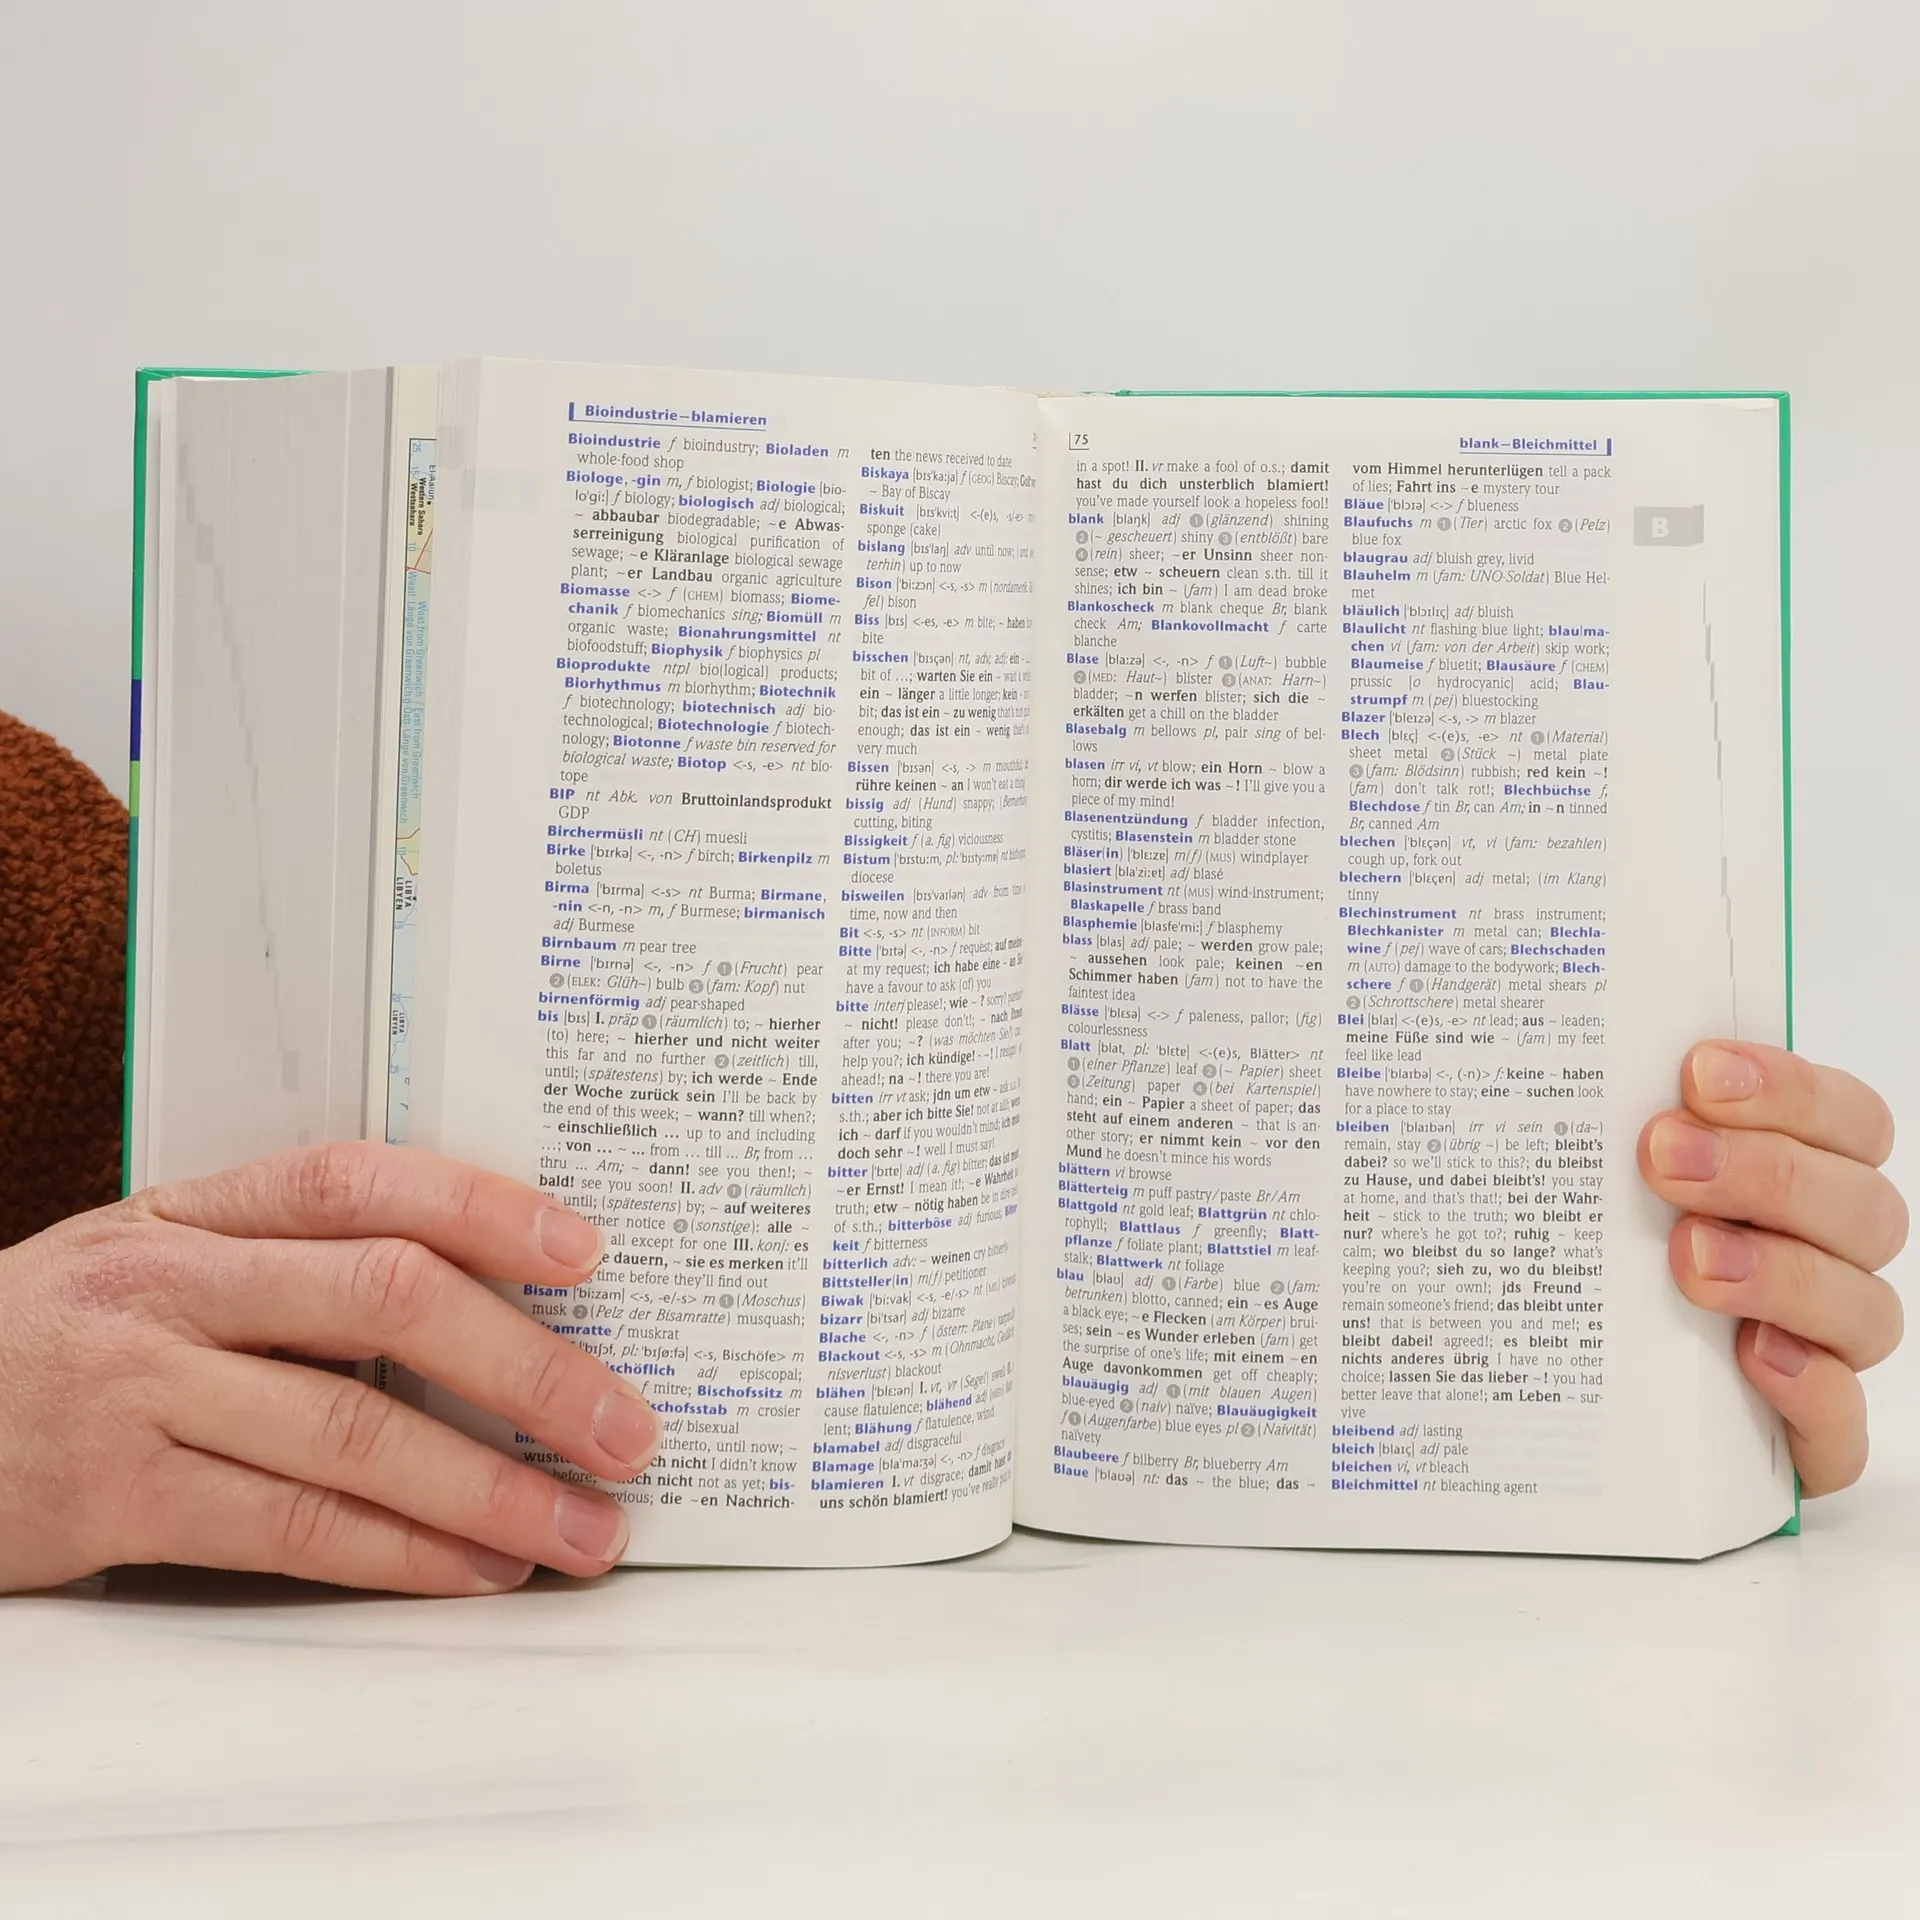 Bioindustrie–blamieren
Bioindustrie f bioindustry; Bioladen m
whole-food shop
Biologe, -gin m, f biologist; Biologie [bio-
lo'gi:] f biology; biologisch adj biological;
~ abbaubar biodegradable; ~e Abwas-
serreinigung biological purification of
sewage; ~e Kläranlage biological sewage
plant; ~er Landbau organic agriculture
Biomasse <-> f (CHEM) biomass; Biome-
chanik f biomechanics sing; Biomüll m
organic waste; Bionahrungsmittel nt
biofoodstuff; Biophysik f biophysics pl
Bioprodukte ntpl bio(logical) products;
Biorhythmus m biorhythm; Biotechnik
f biotechnology; biotechnisch adj bio-
technological; Biotechnologie f biotech-
nology; Biotonne f waste bin reserved for
biological waste; Biotop <-s, -e> nt bio-
tope
BIP nt Abk. von Bruttoinlandsprodukt
GDP
Birchermüsli nt (CH) muesli
Birke ['bɪrkə] <-, -n> f birch; Birkenpilz m
boletus
Birma ['bɪrma] <-s> nt Burma; Birmane,
-nin <-n, -n> m, f Burmese; birmanisch
adj Burmese
Birnbaum m pear tree
Birne ['bɪrnə] <-, -n> f ❶ (Frucht) pear
❷ (ELEK: Glüh~) bulb ❸ (fam: Kopf) nut
birnenförmig adj pear-shaped
bis [bɪs] I. präp ❶ (räumlich) to; ~ hierher
(to) here; ~ hierher und nicht weiter
this far and no further ❷ (zeitlich) till,
until; (spätestens) by; ich werde ~ Ende
der Woche zurück sein I'll be back by
the end of this week; ~ wann? till when?;
~ einschließlich ... up to and including
...; von ... ~ ... from ... till ... Br, from ...
thru ... Am; ~ dann! see you then!; ~
bald! see you soon! II. adv ❶ (räumlich)
until; (spätestens) by; ~ auf weiteres
notice ❷ (sonstige): alle ~
all except for one III. konj: es
dauern, ~ sie es merken it'll
time before they'll find out
Bisam ['bi:zam] <-s, -e/-s> m ❶ (Moschus)
musk ❷ (Pelz der Bisamratte) musquash;
f muskrat
['bɪʃɔf, pl: 'bɪʃø:fə] <-s, Bischöfe> m
adj episcopal;
f mitre; Bischofssitz m
m crosier
adj bisexual
until now; ~
nicht I didn't know
before; nicht not as yet; bis-
die ~en Nachrich-
ten the news received to date
Biskaya [bɪs'ka:ja] f (GEOG) Biscay;
~ Bay of Biscay
Biskuit [bɪs'kvi:t] <-(e)s,
sponge (cake)
bislang [bɪs'laŋ] adv until now;
terhin) up to now
Bison ['bi:zɔn] <-s, -s> m
fel) bison
Biss [bɪs] <-es, -e> m bite; ~ haben
bite
bisschen ['bɪsçən] nt, adv, adj: ein ~
bit of ...; warten Sie ein ~
ein ~ länger a little longer; kein ~
bit; das ist ein ~ zu wenig
enough; das ist ein ~ wenig
very much
Bissen ['bɪsən] <-s, -> m
rühre keinen ~ an I won't eat a thing
bissig adj (Hund) snappy;
cutting, biting
Bissigkeit f (a. fig) viciousness
Bistum ['bɪstu:m, pl: 'bɪsty:mɐ] nt
diocese
bisweilen [bɪs'vaɪlən] adv from time
time, now and then
Bit <-s, -s> nt (INFORM) bit
Bitte ['bɪtə] <-, -n> f request; auf
at my request; ich habe eine ~ an
have a favour to ask (of) you
bitte interj please!; wie ~?
~ nicht! please don't!; ~ nach Ihnen
after you; ~? (was möchten Sie?)
help you?; ich kündige! - ~!
ahead!; na ~! there you are!
bitten irr vt ask; jdn um etw ~
s.th.; aber ich bitte Sie! not at all;
ich ~ darf if you wouldn't mind;
doch sehr ~! well I must say!
bitter ['bɪtɐ] adj (a. fig) bitter;
~er Ernst! I mean it!; ~e Wahrheit
truth; etw ~ nötig haben
of s.th.; bitterböse adj furious;
keit f bitterness
bitterlich adv: ~ weinen cry bitterly
Bittsteller(in) m(f) petitioner
Biwak ['bi:vak] <-s, -e/-s> nt (MIL)
bizarr [bi'tsar] adj bizarre
Blache <-, -n> f (österr: Plane) tarpaulin
Blackout <-s, -s> m (Ohnmacht,
nisverlust) blackout
blähen ['blɛ:ən] I. vt, vr (Segel) swell
cause flatulence; blähend adj
lent; Blähung f flatulence, wind
blamabel adj disgraceful
Blamage [bla'ma:ʒə] <-, -n> f disgrace
blamieren I. vt disgrace; damit hast
uns schön blamiert! you've really
75
blank–Bleichmittel
in a spot! II. vr make a fool of o.s.; damit
hast du dich unsterblich blamiert!
you've made yourself look a hopeless fool!
blank [blaŋk] adj ❶ (glänzend) shining
❷ (~ gescheuert) shiny ❸ (entblößt) bare
❹ (rein) sheer; ~er Unsinn sheer non-
sense; etw ~ scheuern clean s.th. till it
shines; ich bin ~ (fam) I am dead broke
Blankoscheck m blank cheque Br, blank
check Am; Blankovollmacht f carte
blanche
Blase [bla:zə] <-, -n> f ❶ (Luft~) bubble
❷ (MED: Haut~) blister ❸ (ANAT: Harn~)
bladder; ~n werfen blister; sich die ~
erkälten get a chill on the bladder
Blasebalg m bellows pl, pair sing of bel-
lows
blasen irr vi, vt blow; ein Horn ~ blow a
horn; dir werde ich was ~! I'll give you a
piece of my mind!
Blasenentzündung f bladder infection,
cystitis; Blasenstein m bladder stone
Bläser(in) ['blɛ:zɐ] m(f) (MUS) windplayer
blasiert [bla'zi:ɐt] adj blasé
Blasinstrument nt (MUS) wind-instrument;
Blaskapelle f brass band
Blasphemie [blasfe'mi:] f blasphemy
blass [blas] adj pale; ~ werden grow pale;
~ aussehen look pale; keinen ~en
Schimmer haben (fam) not to have the
faintest idea
Blässe ['blɛsə] <-> f paleness, pallor; (fig)
colourlessness
Blatt [blat, pl: 'blɛtɐ] <-(e)s, Blätter> nt
❶ (einer Pflanze) leaf ❷ (~ Papier) sheet
❸ (Zeitung) paper ❹ (bei Kartenspiel)
hand; ein ~ Papier a sheet of paper; das
steht auf einem anderen ~ that is an-
other story; er nimmt kein ~ vor den
Mund he doesn't mince his words
blättern vi browse
Blätterteig m puff pastry/paste Br/Am
Blattgold nt gold leaf; Blattgrün nt chlo-
rophyll; Blattlaus f greenfly; Blatt-
pflanze f foliate plant; Blattstiel m leaf-
stalk; Blattwerk nt foliage
blau [blaʊ] adj ❶ (Farbe) blue ❷ (fam:
betrunken) blotto, canned; ein ~es Auge
a black eye; ~e Flecken (am Körper) brui-
ses; sein ~es Wunder erleben (fam) get
the surprise of one's life; mit einem ~en
Auge davonkommen get off cheaply;
blauäugig adj ❶ (mit blauen Augen)
blue-eyed ❷ (naiv) naïve; Blauäugigkeit
f ❶ (Augenfarbe) blue eyes pl ❷ (Naivität)
naïvety
Blaubeere f bilberry Br, blueberry Am
Blaue ['blaʊə] nt: das ~ the blue; das ~
vom Himmel herunterlügen tell a pack
of lies; Fahrt ins ~e mystery tour
Bläue ['blɔɪə] <-> f blueness
Blaufuchs m ❶ (Tier) arctic fox ❷ (Pelz)
blue fox
blaugrau adj bluish grey, livid
Blauhelm m (fam: UNO-Soldat) Blue Hel-
met
bläulich ['blɔɪlɪç] adj bluish
Blaulicht nt flashing blue light; blau|ma-
chen vi (fam: von der Arbeit) skip work;
Blaumeise f bluetit; Blausäure f (CHEM)
prussic [o hydrocyanic] acid; Blau-
strumpf m (pej) bluestocking
Blazer ['bleɪzə] <-s, -> m blazer
Blech [blɛç] <-(e)s, -e> nt ❶ (Material)
sheet metal ❷ (Stück ~) metal plate
❸ (fam: Blödsinn) rubbish; red kein ~!
(fam) don't talk rot!; Blechbüchse f,
Blechdose f tin Br, can Am; in ~n tinned
Br, canned Am
blechen ['blɛçən] vt, vi (fam: bezahlen)
cough up, fork out
blechern ['blɛçɐn] adj metal; (im Klang)
tinny
Blechinstrument nt brass instrument;
Blechkanister m metal can; Blechla-
wine f (pej) wave of cars; Blechschaden
m (AUTO) damage to the bodywork; Blech-
schere f ❶ (Handgerät) metal shears pl
❷ (Schrottschere) metal shearer
Blei [blaɪ] <-(e)s, -e> nt lead; aus ~ leaden;
meine Füße sind wie ~ (fam) my feet
feel like lead
Bleibe ['blaɪbə] <-, (-n)> f: keine ~ haben
have nowhere to stay; eine ~ suchen look
for a place to stay
bleiben ['blaɪbən] irr vi sein ❶ (da~)
remain, stay ❷ (übrig ~) be left; bleibt's
dabei? so we'll stick to this?; du bleibst
zu Hause, und dabei bleibt's! you stay
at home, and that's that!; bei der Wahr-
heit ~ stick to the truth; wo bleibt er
nur? where's he got to?; ruhig ~ keep
calm; wo bleibst du so lange? what's
keeping you?; sieh zu, wo du bleibst!
you're on your own!; jds Freund ~
remain someone's friend; das bleibt unter
uns! that is between you and me!; es
bleibt dabei! agreed!; es bleibt mir
nichts anderes übrig I have no other
choice; lassen Sie das lieber ~! you had
better leave that alone!; am Leben ~ sur-
vive
bleibend adj lasting
bleich [blaɪç] adj pale
bleichen vi, vt bleach
Bleichmittel nt bleaching agent
B